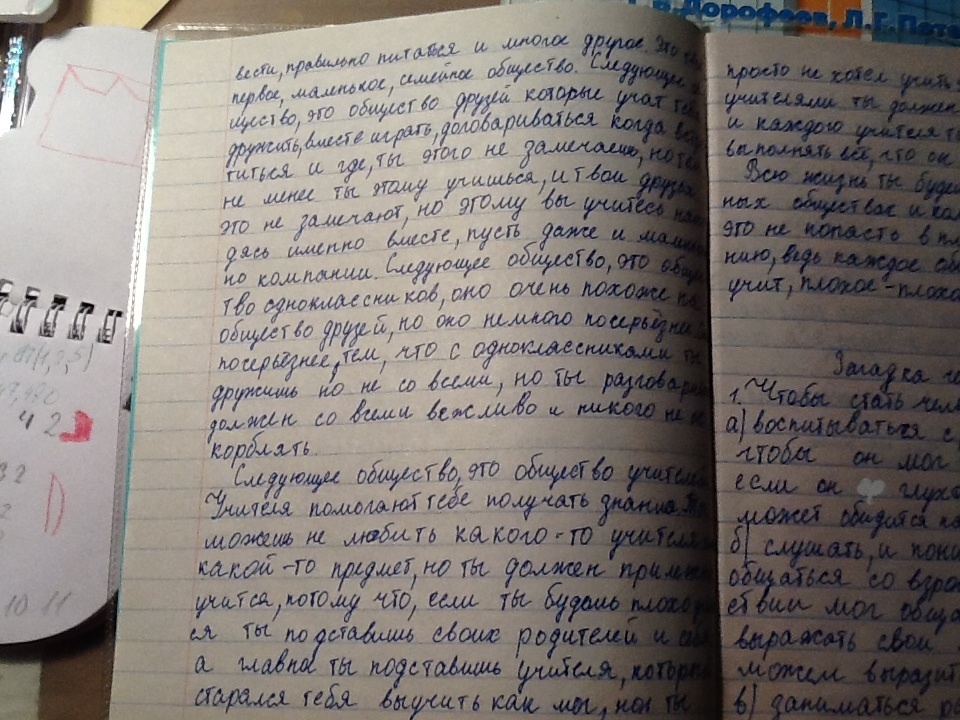 В. Дорофеев, Л. Г. Пете
вести, правильно питаться и многое другое. Это
первое, маленькое, семейное общество. Следующее
щество, это общество друзей которые учат теб
дружить, вместе играть, договариваться когда
титься и где, ты этого не замечаешь, но те
не менее ты этому учишься, и твои друзья
это не замечают, но этому вы учитесь
дясь именно вместе, пусть даже и
но компании. Следующее общество, это общес
тво одноклассников, оно очень похоже на
общество друзей, но оно немного посерьёзнее
посерьёзнее, тем, что с одноклассниками ты
дружишь но не со всеми, но ты разговари
должен со всеми вежливо и никого не
корблять.
Следующее общество, это общество учителе
Учителя помогают тебе получать знания.
можешь не любить какого-то учителя
какой-то предмет, но ты должен
учится, потому что, если ты будешь плохо
ся ты подставишь своих родителей и
а главна ты подставишь учителя, которы
старался тебя выучить как мог, но ты
просто не хотел учить
учителями ты должен
и каждого учителя
выполнять всё, что он
Всю жизнь ты будеш
ных обществах и
это не попасть в
нию, ведь каждое
учит, плохое - плохо
Загадка
1. Чтобы стать чел
а) воспитываться
чтобы он мог
если он глух
может обидится
б) слушать, и пони
общаться со взро
ствии мог обща
выражать свои
можем выразит
в) заниматься
4 2
10 11